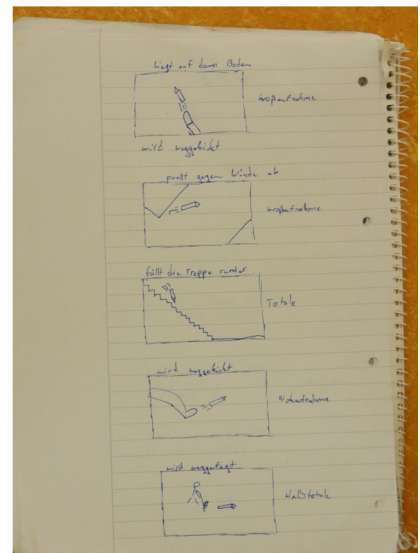 liegt auf dem Boden
Großaufnahme
wird weggekickt
prallt gegen Wände ab
Großaufnahme
fällt die Treppe runter
Totale
wird weggekickt
Nahaufnahme
wird weggefegt
Halbtotale